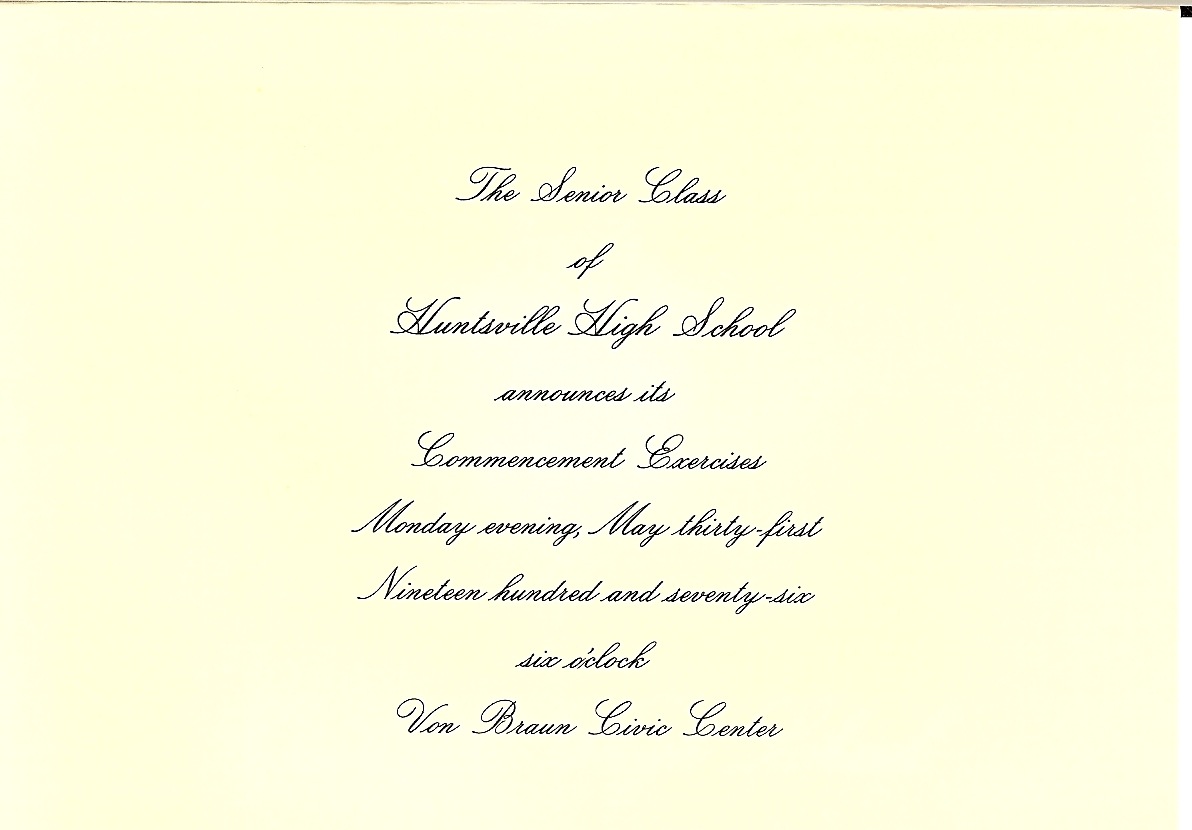 The Senior Class
of
Huntsville High School
announces its
Commencement Exercises
Monday evening, May thirty-first
Nineteen hundred and seventy-six
six o'clock
Von Braun Civic Center